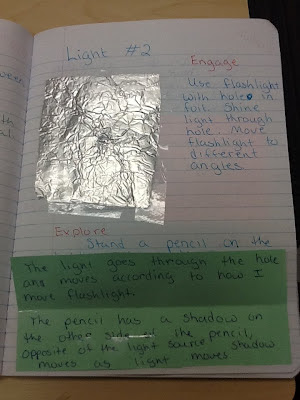 Light #2
Engage
Use flashlight
with hole in
foil. Shine
light through
hole. Move
flashlight to
different
angles
Explore
Stand a pencil on the
The light goes through the hole
and moves according to how I
move flashlight.
The pencil has a shadow on
the other side of the pencil,
opposite of the light source, shadow
moves as light moves